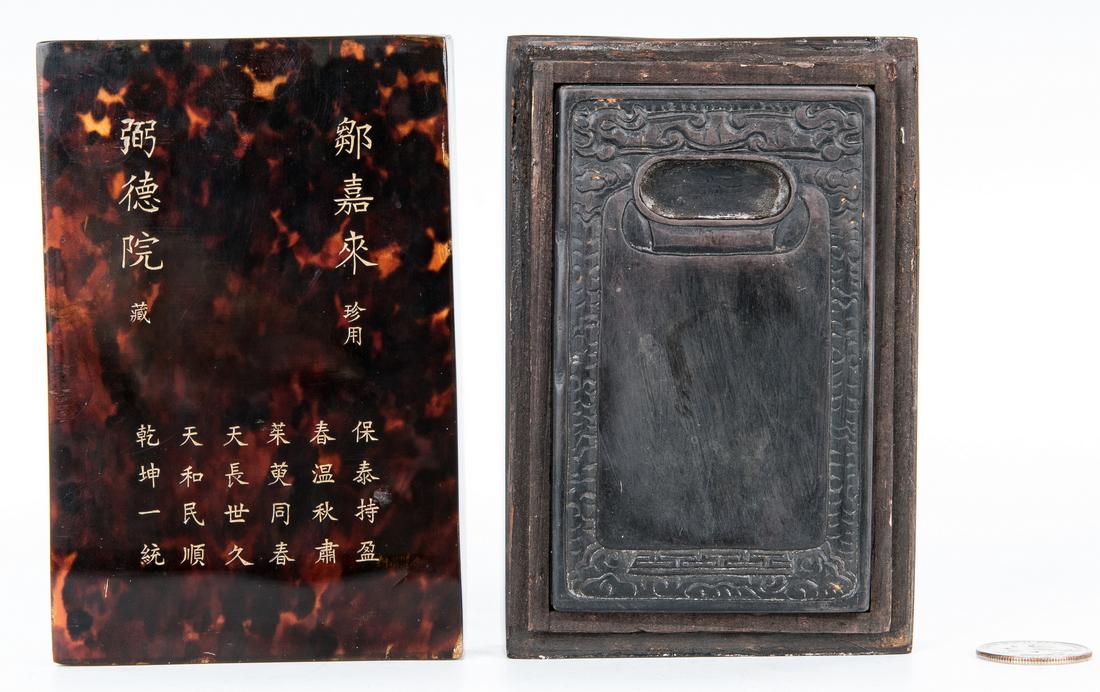 鄒嘉來珍用
弼德院藏
保泰持盈
春温秋肅
茱萸同春
天長世久
天和民順
乾坤一統